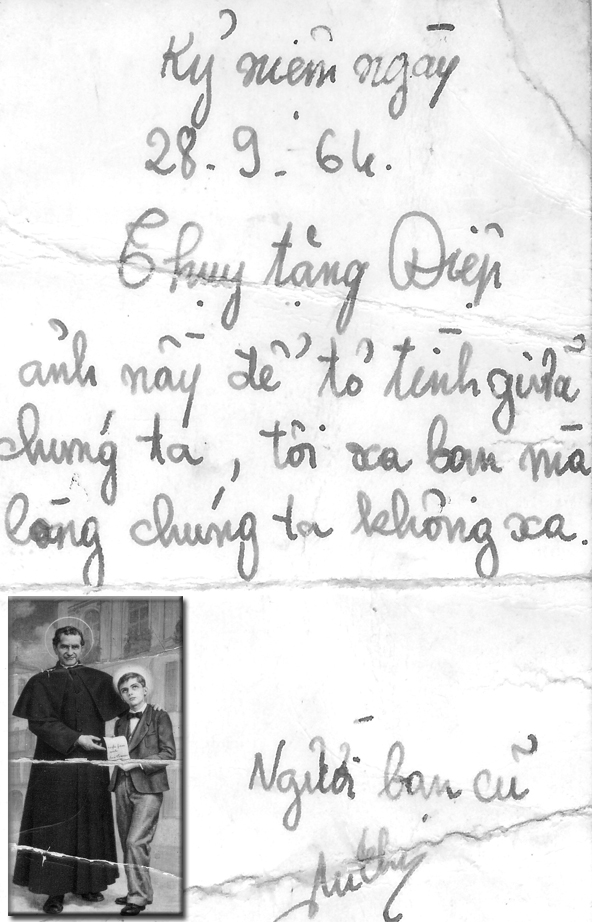 Kỷ niệm ngày
28-9-64.
Thụy tặng Điệp
ảnh nầy để tỏ tình giữa
chúng ta, tôi xa bạn mà
lòng chúng ta không xa.
Người bạn cũ